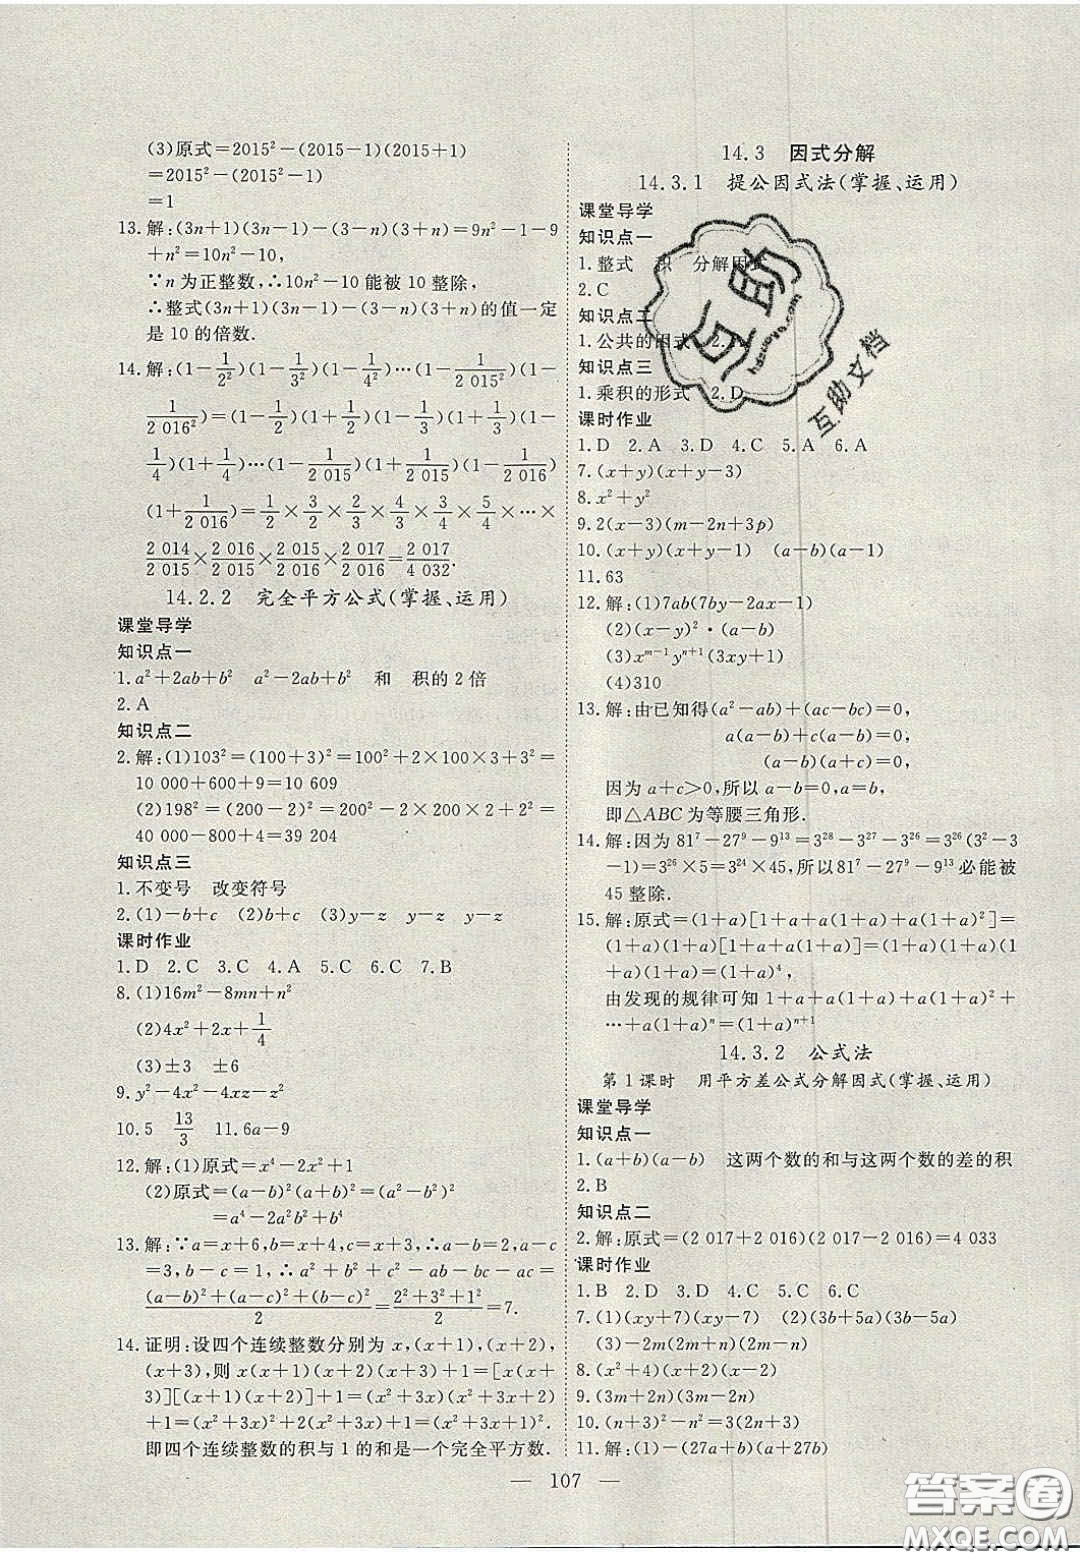 (3)原式=2015²-(2015-1)(2015+1)
=2015²-(2015²-1)
=1
13.解:(3n+1)(3n-1)-(3-n)(3+n)=9n²-1-9
+n²=10n²-10,
∵n为正整数,∴10n²-10能被10整除,
∴整式(3n+1)(3n-1)-(3-n)(3+n)的值一定
是10的倍数.
14.解:(1-1/2²)(1-1/3²)(1-1/4²)…(1-1/2 015²)(1-
1/2 016²)=(1-1/2)(1+1/2)(1-1/3)(1+1/3)(1-
1/4)(1+1/4)…(1-1/2 015)(1+1/2 015)(1-1/2 016)
(1+1/2 016)=1/2×3/2×2/3×4/3×3/4×5/4×…×
2 014/2 015×2 016/2 015×2 015/2 016×2 017/2 016=2 017/4 032.
14.2.2 完全平方公式(掌握、运用)
课堂导学
知识点一
1.a²+2ab+b² a²-2ab+b² 和 积的2倍
2.A
知识点二
2.解:(1)103²=(100+3)²=100²+2×100×3+3²=
10 000+600+9=10 609
(2)198²=(200-2)²=200²-2×200×2+2²=
40 000-800+4=39 204
知识点三
1.不变号 改变符号
2.(1)-b+c (2)b-c (3)y-z y-z y-z
课时作业
1.D 2.C 3.C 4.A 5.C 6.C 7.B
8.(1)16m²-8mn+n²
(2)4x²+2x+1/4
(3)±3 ±6
9.y²-4x²-4xz-z²
10.5 13/3 11.6a-9
12.解:(1)原式=x⁴-2x²+1
(2)原式=(a-b)²(a+b)²=(a²-b²)²
=a⁴-2a²b²+b⁴
13.解:∵a=x+6,b=x+4,c=x+3,∴a-b=2,a-c
=3,b-c=1,∴a²+b²+c²-ab-bc-ac=
(a-b)²+(a-c)²+(b-c)²/2=2²+3²+1²/2=7.
14.证明:设四个连续整数分别为x,(x+1),(x+2),
(x+3),则x(x+1)(x+2)(x+3)+1=[x(x+
3)][(x+1)(x+2)]+1=(x²+3x)(x²+3x+2)
+1=(x²+3x)²+2(x²+3x)+1=(x²+3x+1)².
即四个连续整数的积与1的和是一个完全平方数.
14.3 因式分解
14.3.1 提公因式法(掌握、运用)
课堂导学
知识点一
1.整式 积 分解因式
2.C
知识点二
1.公共的因式 2.
知识点三
1.乘积的形式 2.D
课时作业
1.D 2.A 3.D 4.C 5.A 6.A
7.(x+y)(x+y-3)
8.x²+y²
9.2(x-3)(m-2n+3p)
10.(x+y)(x+y-1) (a-b)(a-1)
11.63
12.解:(1)7ab(7by-2ax-1)
(2)(x-y)²·(a-b)
(3)xᵐ⁻¹yⁿ⁺¹(3xy+1)
(4)310
13.解:由已知得(a²-ab)+(ac-bc)=0,
a(a-b)+c(a-b)=0,
(a-b)(a+c)=0,
因为a+c>0,所以a-b=0,a=b,
即△ABC为等腰三角形.
14.解:因为81⁷-27⁹-9¹³=3²⁸-3²⁷-3²⁶=3²⁶(3²-3
-1)=3²⁶×5=3²⁴×45,所以81⁷-27⁹-9¹³必能被
45整除.
15.解:原式=(1+a)[1+a+a(1+a)+a(1+a)²]=
(1+a)(1+a)[1+a+a(1+a)]=(1+a)(1+a)(1
+a)(1+a)=(1+a)⁴,
由发现的规律可知1+a+a(1+a)+a(1+a)²+
…+a(1+a)ⁿ=(1+a)ⁿ⁺¹
14.3.2 公式法
第1课时 用平方差公式分解因式(掌握、运用)
课堂导学
知识点一
1.(a+b)(a-b) 这两个数的和与这两个数的差的积
2.B
知识点二
2.解:原式=(2 017+2 016)(2 017-2 016)=4 033
课时作业
1.B 2.D 3.D 4.C 5.C 6.C
7.(1)(xy+7)(xy-7) (2)(3b+5a)(3b-5a)
(3)-2(m+2)(m-2)
8.(x²+4)(x+2)(x-2)
9.(3m+2n)(3m-2n)
10.(n+3)²-n²=3(2n+3)
11.解:(1)-(27a+b)(a+27b)
— 107 —
互助
互助文档
答案圈
MXQE.COM